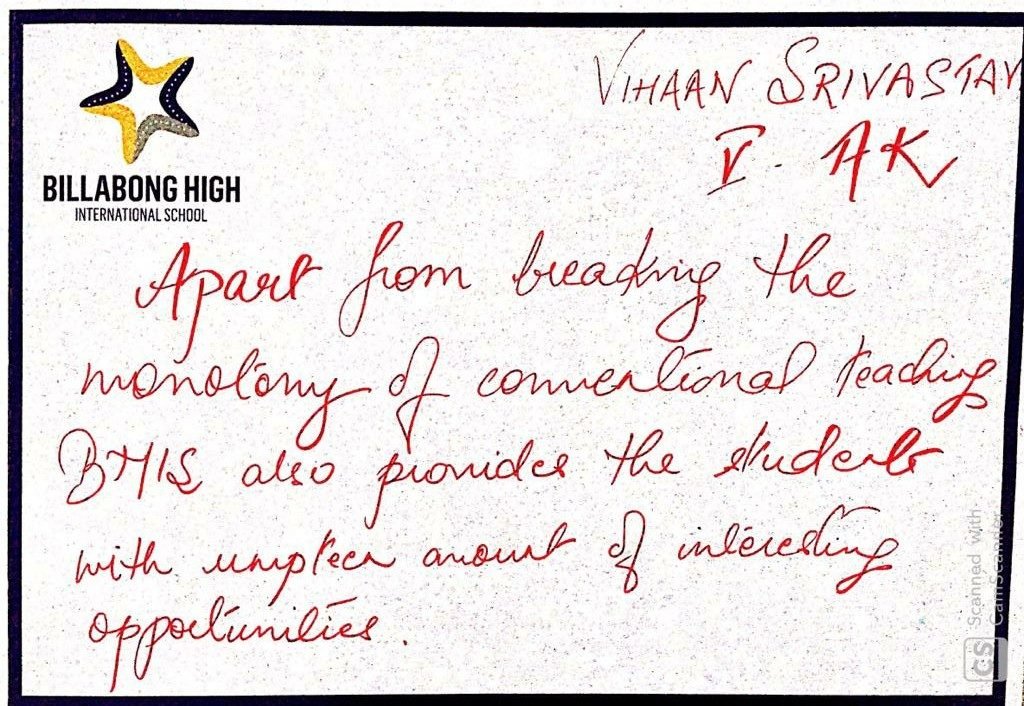 VIHAAN SRIVASTAV
V. AK
BILLABONG HIGH
INTERNATIONAL SCHOOL
Apart from breaking the
monotony of conventional teaching
BHIS also provides the students
with umpteen amount of interesting
opportunities.
CS Scanned with
CamScanner